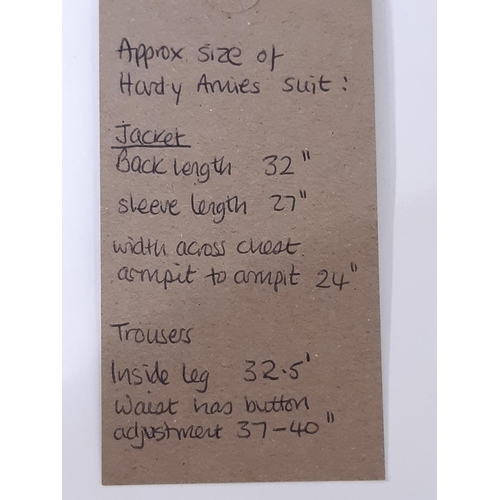 Approx size of
Hardy Amies suit:
Jacket
Back length 32"
sleeve length 27"
width across chest
armpit to armpit 24"
Trousers
Inside leg 32.5'
Waist has button
adjustment 37-40"